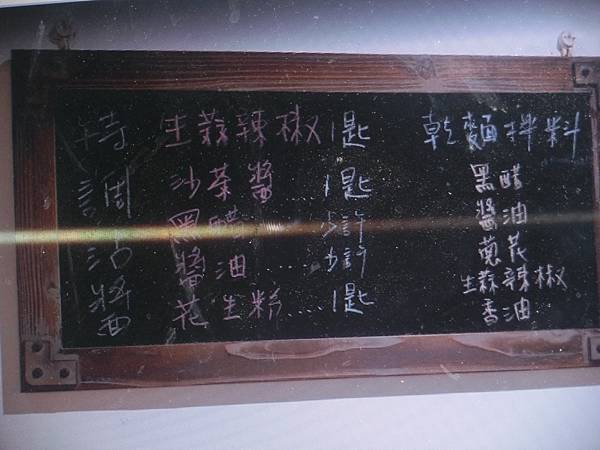 特調沾醬
生蒜辣椒1匙
沙茶醬....1匙
黑醋....少許
醬油....少許
花生粉....1匙
乾麵拌料
黑醋
醬油
蔥花
生蒜辣椒
香油